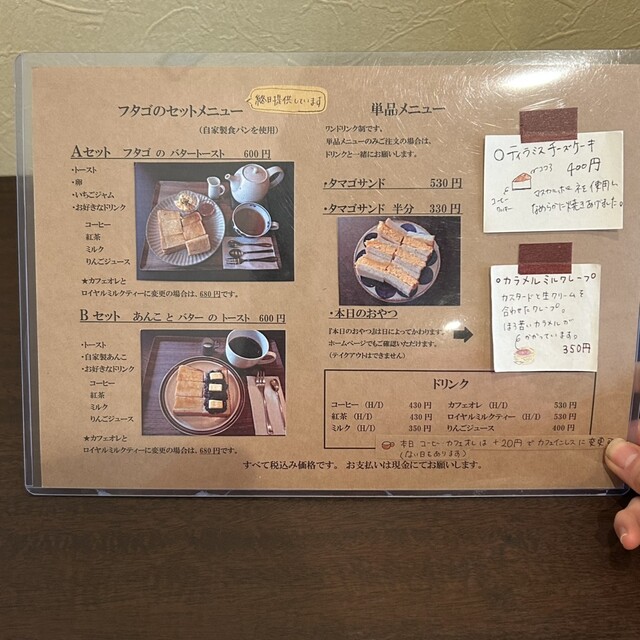 終日提供しています
フタゴのセットメニュー
(自家製食パンを使用)
Aセット フタゴ の バタートースト 600 円
・トースト
・卵
・いちごジャム
・お好きなドリンク
コーヒー
紅茶
ミルク
りんごジュース
★カフェオレと
ロイヤルミルクティーに変更の場合は、680 円です。
B セット あんこ と バター の トースト 600 円
・トースト
・自家製あんこ
・お好きなドリンク
コーヒー
紅茶
ミルク
りんごジュース
★カフェオレと
ロイヤルミルクティーに変更の場合は、680 円です。
単品メニュー
ワンドリンク制です。
単品メニューのみご注文の場合は、
ドリンクと一緒にお願いします。
・タマゴサンド 530 円
・タマゴサンド 半分 330 円
・本日のおやつ
『本日のおやつ』は日によってかわります。
ホームページでもご確認いただけます。
(テイクアウトはできません)
ドリンク
コーヒー (H/I) 430 円 カフェオレ (H/I) 530 円
紅茶 (H/I) 430 円 ロイヤルミルクティー (H/I) 530 円
ミルク (H/I) 350 円 りんごジュース 400 円
本日 コーヒー・カフェオレは +20円 で カフェインレス に 変更
(ない日もあります)
すべて税込み価格です。 お支払いは現金にてお願いします。
○ティラミスチーズケーキ
400円
ココア
コーヒー
クッキー
マスカルポーネを使用し
なめらかに焼きあげました。
○カラメルミルクレープ
カスタードと生クリームを
合わせたクレープ。
ほろ苦いカラメルが
かかっています。
350円